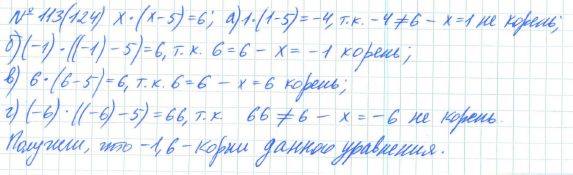 № 113(124) x·(x-5)=6; а) 1·(1-5)=-4, т.к. -4≠6 - x=1 не корень;
б) (-1)·((-1)-5)=6, т.к. 6=6 - x=-1 корень;
в) 6·(6-5)=6, т.к. 6=6 - x=6 корень;
г) (-6)·((-6)-5)=66, т.к. 66≠6 - x=-6 не корень.
Получили, что -1,6 - корни данного уравнения.